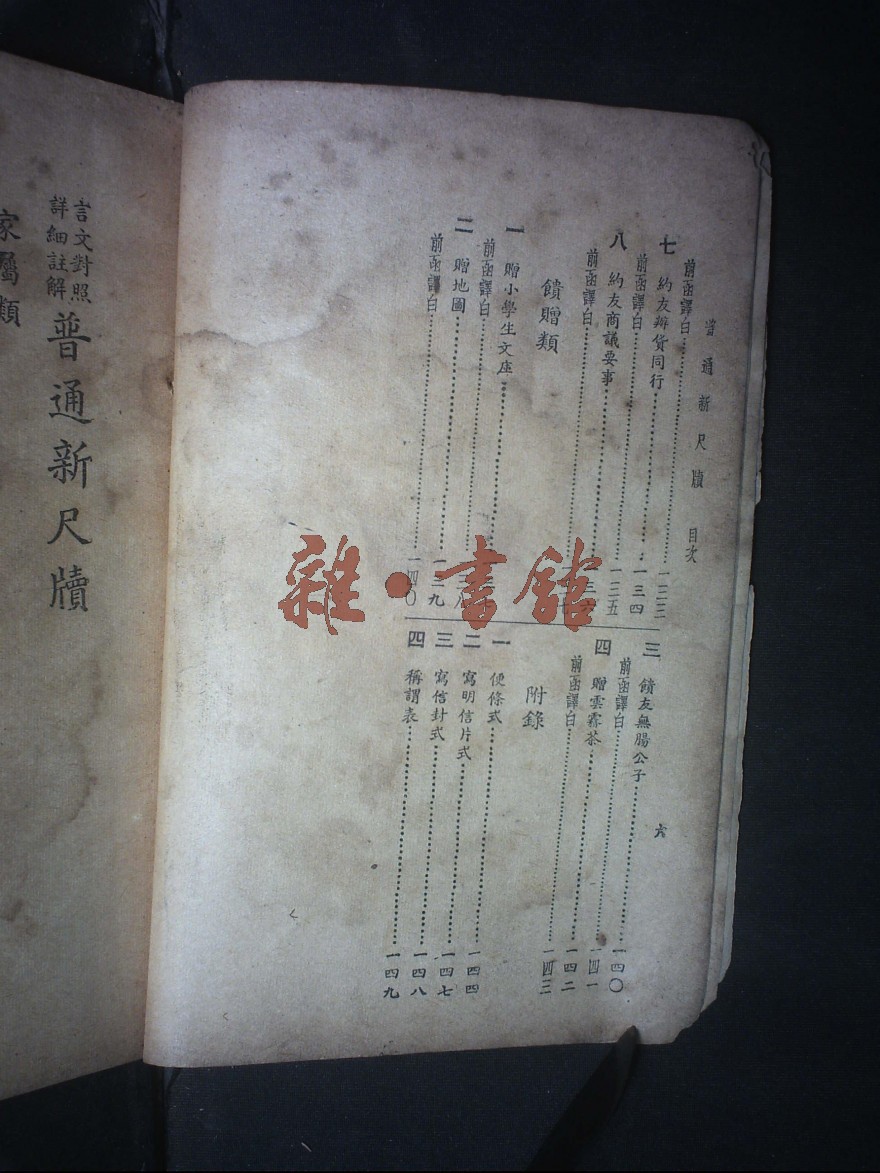 普通新尺牘 目次
六
前函譯白……一三三
七 約友辦貨同行……一三四
前函譯白……一三五
八 約友商議要事……一三六
前函譯白……
饋贈類
一 贈小學生文座……
前函譯白……一三八
二 贈地圖……一三九
前函譯白……一四〇
三 饋友無腸公子……一四〇
前函譯白……一四一
四 贈雲霧茶……一四二
前函譯白……一四三
附錄
一 便條式……一四四
二 寫明信片式……一四七
三 寫信封式……一四八
四 稱謂表……一四九
言文對照
詳細註解
普通新尺牘
家屬類
雜·書館